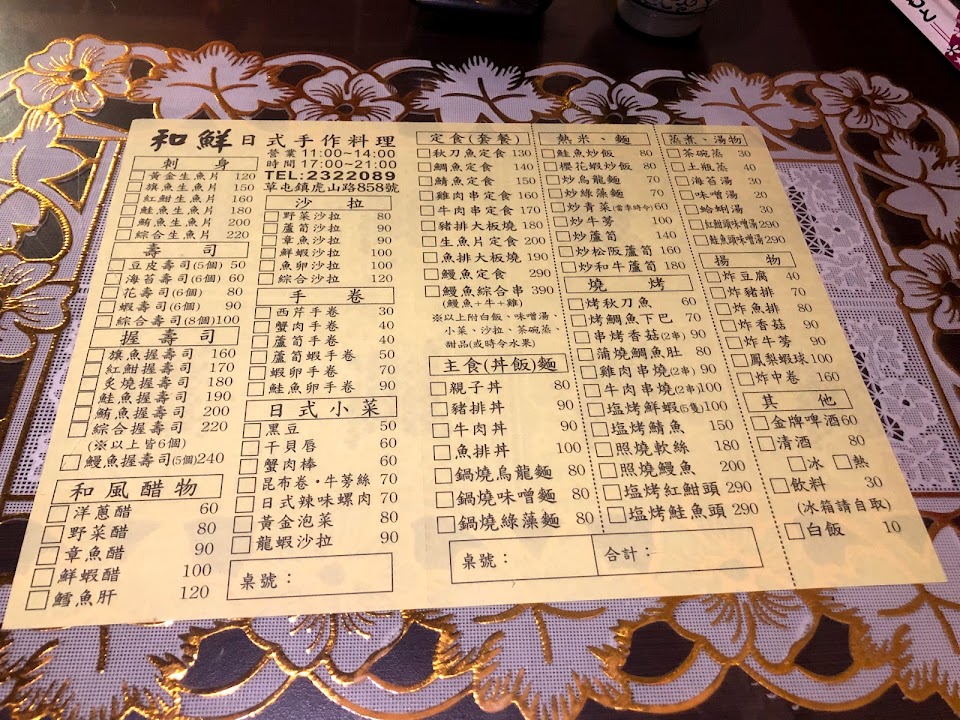 和鮮日式手作料理
營業 11:00~14:00
時間 17:00~21:00
TEL:2322089
草屯鎮虎山路858號
刺身
黃金生魚片 120
旗魚生魚片 150
紅魽生魚片 160
鮭魚生魚片 180
鮪魚生魚片 200
綜合生魚片 220
壽司
豆皮壽司(5個) 50
海苔壽司(6個) 60
花壽司(6個) 80
蝦壽司(6個) 90
綜合壽司(8個)100
握壽司
旗魚握壽司 160
紅魽握壽司 170
炙燒握壽司 180
鮭魚握壽司 190
鮪魚握壽司 200
綜合握壽司 220
(※以上皆6個)
鰻魚握壽司(5個)240
和風醋物
洋蔥醋 60
野菜醋 80
章魚醋 90
鮮蝦醋 100
鱈魚肝 120
沙拉
野菜沙拉 80
蘆筍沙拉 90
章魚沙拉 90
鮮蝦沙拉 100
魚卵沙拉 100
綜合沙拉 120
手卷
西芹手卷 30
蟹肉手卷 40
蘆筍手卷 40
蘆筍蝦手卷 50
蝦卵手卷 70
鮭魚卵手卷 90
日式小菜
黑豆 50
干貝唇 60
蟹肉棒 60
昆布卷·牛蒡絲 70
日式辣味螺肉 70
黃金泡菜 80
龍蝦沙拉 90
桌號：
定食(套餐)
秋刀魚定食 130
鯛魚定食 140
鯖魚定食 150
雞肉串定食 160
牛肉串定食 170
豬排大板燒 180
生魚片定食 200
魚排大板燒 190
鰻魚定食 290
鰻魚綜合串 390
(鰻魚+牛+雞)
※以上附白飯、味噌湯
小菜、沙拉、茶碗蒸
甜品(或時令水果)
主食(丼飯)麵
親子丼 80
豬排丼 90
牛肉丼 90
魚排丼 100
鍋燒烏龍麵 80
鍋燒味噌麵 80
鍋燒綠藻麵 80
熱米、麵
鮭魚炒飯 80
櫻花蝦炒飯 80
炒烏龍麵 70
炒綠藻麵 70
炒青菜(當季時令)60
炒牛蒡 100
炒蘆筍 140
炒松阪蘆筍 160
炒和牛蘆筍 180
燒烤
烤秋刀魚 60
烤鯛魚下巴 70
串烤香菇(2串) 90
蒲燒鯛魚肚 80
雞肉串燒(2串)90
牛肉串燒(2串)100
塩烤鮮蝦(5隻)100
塩烤鯖魚 150
照燒軟絲 180
照燒鰻魚 200
塩烤紅魽頭 290
塩烤鮭魚頭 290
桌號：
合計：
蒸煮、湯物
茶碗蒸 30
土瓶蒸 40
海苔湯 30
味噌湯 20
蛤蜊湯 30
紅魽頭味噌湯290
鮭魚頭味噌湯290
揚物
炸豆腐 40
炸豬排 70
炸魚排 80
炸香菇 90
炸牛蒡 90
鳳梨蝦球100
炸中卷 160
其他
金牌啤酒60
清酒 80
冰 熱
飲料 30
(冰箱請自取)
白飯 10